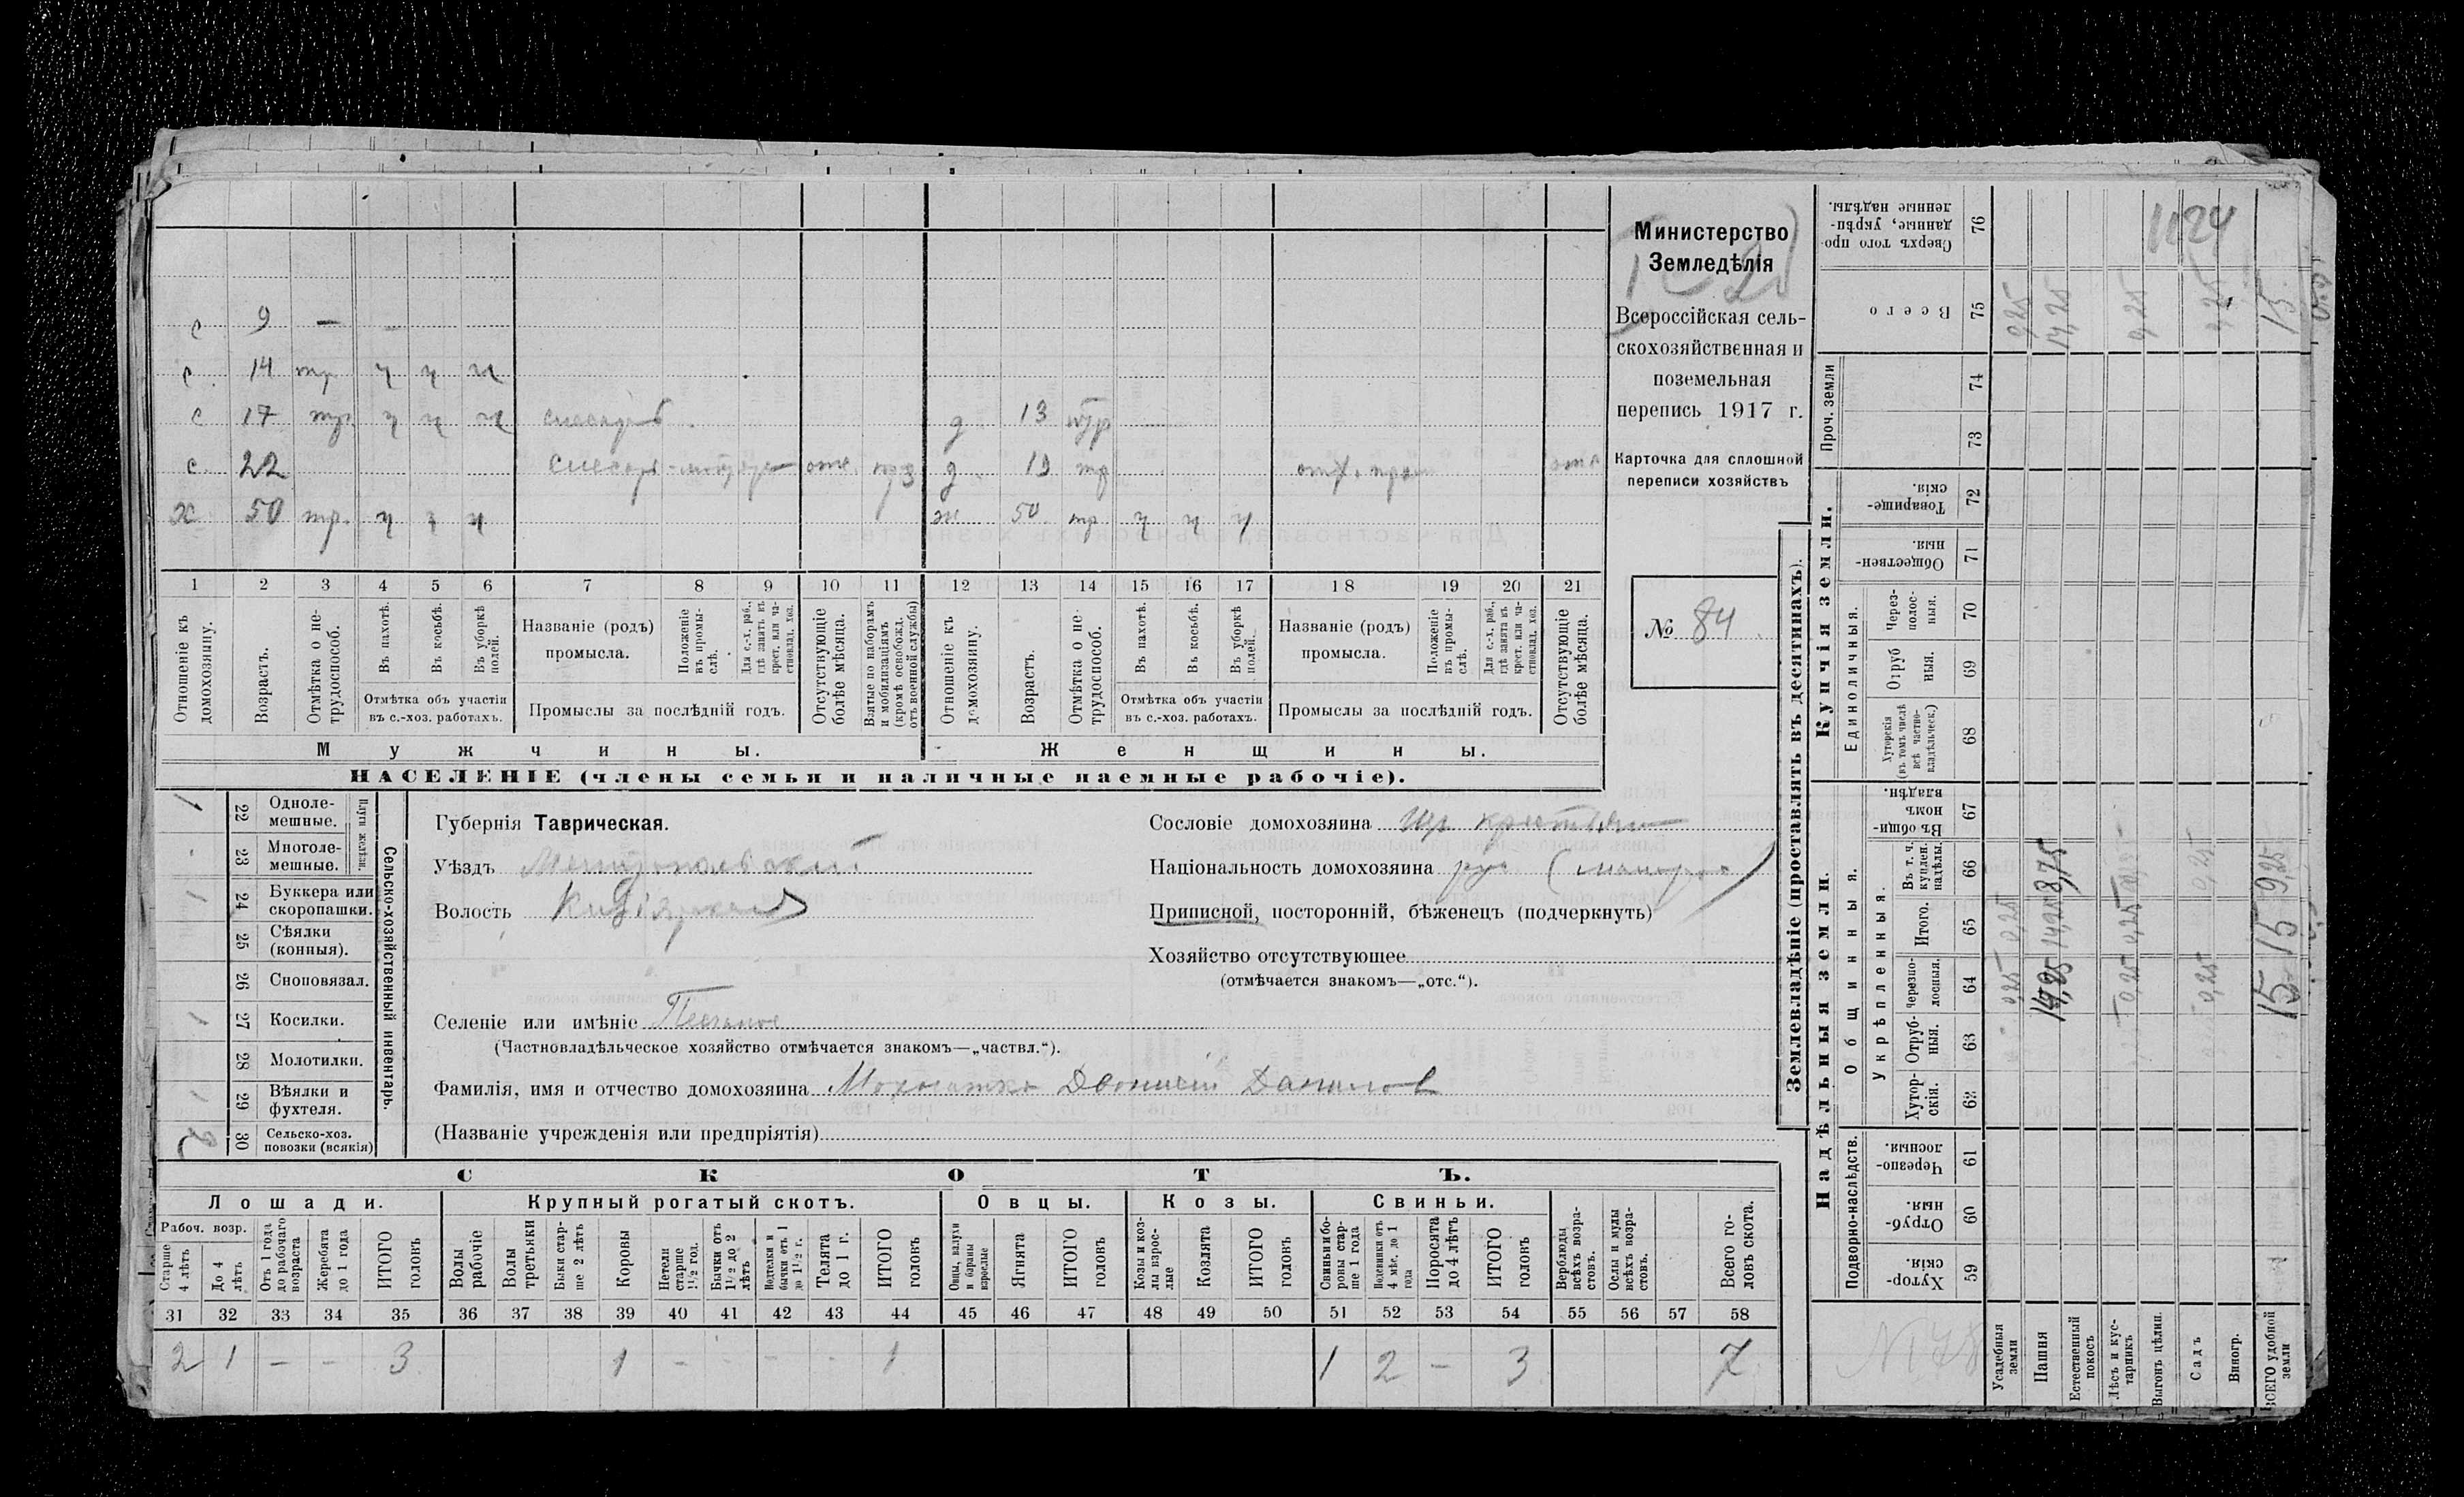 с 9 — —
с 14 тр ч ч ч
с 17 тр. ч ч ч слесарь д 13 тр
с 22 слесарь отс. д 19 тр
х 50 тр. ч ч ч ж 50 тр. ч ч ч
1 2 3 4 5 6 7 8 9 10 11 12 13 14 15 16 17 18 19 20 21
Отношеніе къ домохозяину.
Возрастъ.
Отмѣтка о не-трудоспособ.
Въ пахотѣ.
Въ косьбѣ.
Въ уборкѣ полей.
Отмѣтка объ участіи въ с.-хоз. работахъ.
Названіе (родъ) промысла.
Положеніе въ промы-слѣ.
Для с.-х. раб., гдѣ занятъ въ крест. или ча-стновлад. хоз.
Промыслы за послѣдній годъ.
Отсутствующіе болѣе мѣсяца.
Взятые по наборамъ и мобилизаціямъ (кромѣ освобожд. отъ военной службы)
Отношеніе къ домохозяину.
Возрастъ.
Отмѣтка о не-трудоспособ.
Въ пахотѣ.
Въ косьбѣ.
Въ уборкѣ полей.
Отмѣтка объ участіи въ с.-хоз. работахъ.
Названіе (родъ) промысла.
Положеніе въ промы-слѣ.
Для с.-х. раб., гдѣ занята въ крест. или ча-стновлад. хоз.
Промыслы за послѣдній годъ.
Отсутствующіе болѣе мѣсяца.
Мужчины.
Женщины.
НАСЕЛЕНІЕ (члены семьи и наличные наемные рабочіе).
Министерство
Земледѣлія
Всероссійская сель-
скохозяйственная и
поземельная
перепись 1917 г.
Карточка для сплошной
переписи хозяйствъ
№ 84
Сельско-хозяйственный инвентарь.
Плуги желѣзн.
1 22 Одноле-мешные.
23 Многоле-мешные.
1 24 Буккера или скоропашки.
25 Сѣялки (конныя).
26 Сноповязал.
1 27 Косилки.
28 Молотилки.
1 29 Вѣялки и фухтеля.
2 30 Сельско-хоз. повозки (всякія)
Губернія Таврическая.
Уѣздъ Мелитопольскій
Волость
Сословіе домохозяина
Національность домохозяина
Приписной, посторонній, бѣженецъ (подчеркнуть)
Хозяйство отсутствующее
(отмѣчается знакомъ—„отс.“).
Селеніе или имѣніе Песчаное
(Частновладѣльческое хозяйство отмѣчается знакомъ—„частвл.“).
Фамилія, имя и отчество домохозяина Данилов
(Названіе учрежденія или предпріятія)
СКОТЪ.
Лошади. Крупный рогатый скотъ. Овцы. Козы. Свиньи.
Рабоч. возр.
Старше 4 лѣтъ
До 4 лѣтъ
Отъ 1 года до рабочаго возраста
Жеребята до 1 года
ИТОГО головъ
Волы рабочіе
Волы третьяки
Быки стар-ше 2 лѣтъ
Коровы
Нетели старше 1½ год.
Бычки отъ 1½ до 2 лѣтъ
Нетелки и бычки отъ 1 до 1½ г.
Телята до 1 г.
ИТОГО головъ
Овцы, валухи и бараны взрослые
Ягнята
ИТОГО головъ
Козы и коз-лы взрос-лые
Козлята
ИТОГО головъ
Свиньи и бо-ровы стар-ше 1 года
Подсвинки отъ 4 мѣс. до 1 года
Поросята до 4 лѣтъ
ИТОГО головъ
Верблюды всѣхъ возра-стовъ.
Ослы и мулы всѣхъ возра-стовъ.
Всего го-ловъ скота.
31 32 33 34 35 36 37 38 39 40 41 42 43 44 45 46 47 48 49 50 51 52 53 54 55 56 57 58
2 1 – – 3 1 – – – – 1 1 2 – 3 7
Землевладѣніе (проставлять въ десятинахъ).
Надѣльныя земли.
Купчія земли.
Проч. земли
Подворно-наслѣдств.
Общинныя.
Укрѣпленныя.
Единоличныя.
Хутор-скія. 59
Отруб-ныя. 60
Черезпо-лосныя 61
Хутор-скія. 62
Отруб-ныя. 63
Черезпо-лосныя. 64
Итого. 65
Въ т. ч. куплен. надѣлы. 66
Въ общин-номъ владѣн. 67
Хуторскія (въ томъ числѣ всѣ частно-владѣльческ.) 68
Отруб ныя. 69
Через-полос-ныя. 70
Обществен-ныя. 71
Товарище-скія. 72
73
74
Всего 75
Сверхъ того про-данные, укрѣп-ленные надѣлы. 76
Усадебныя земли 0,25 0,25 0,25
Пашня 14,25 14,25 8,75 14,25
Естественный покосъ
Лѣсъ и кус-тарникъ 0,25 0,25 0,25
Выгонъ цѣлин.
Садъ 0,25 0,25 0,25
Виногр.
ВСЕГО удобной земли 15 15 9,25 15
1124